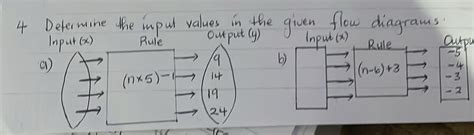 4 Determine the input values in the given flow diagrams.
Input (x) Rule Output (y) Input (x) Rule Outpu
a) (n×5) – 1 9 14 19 24
b) (n–6)+3 -5 -4 -3 -2